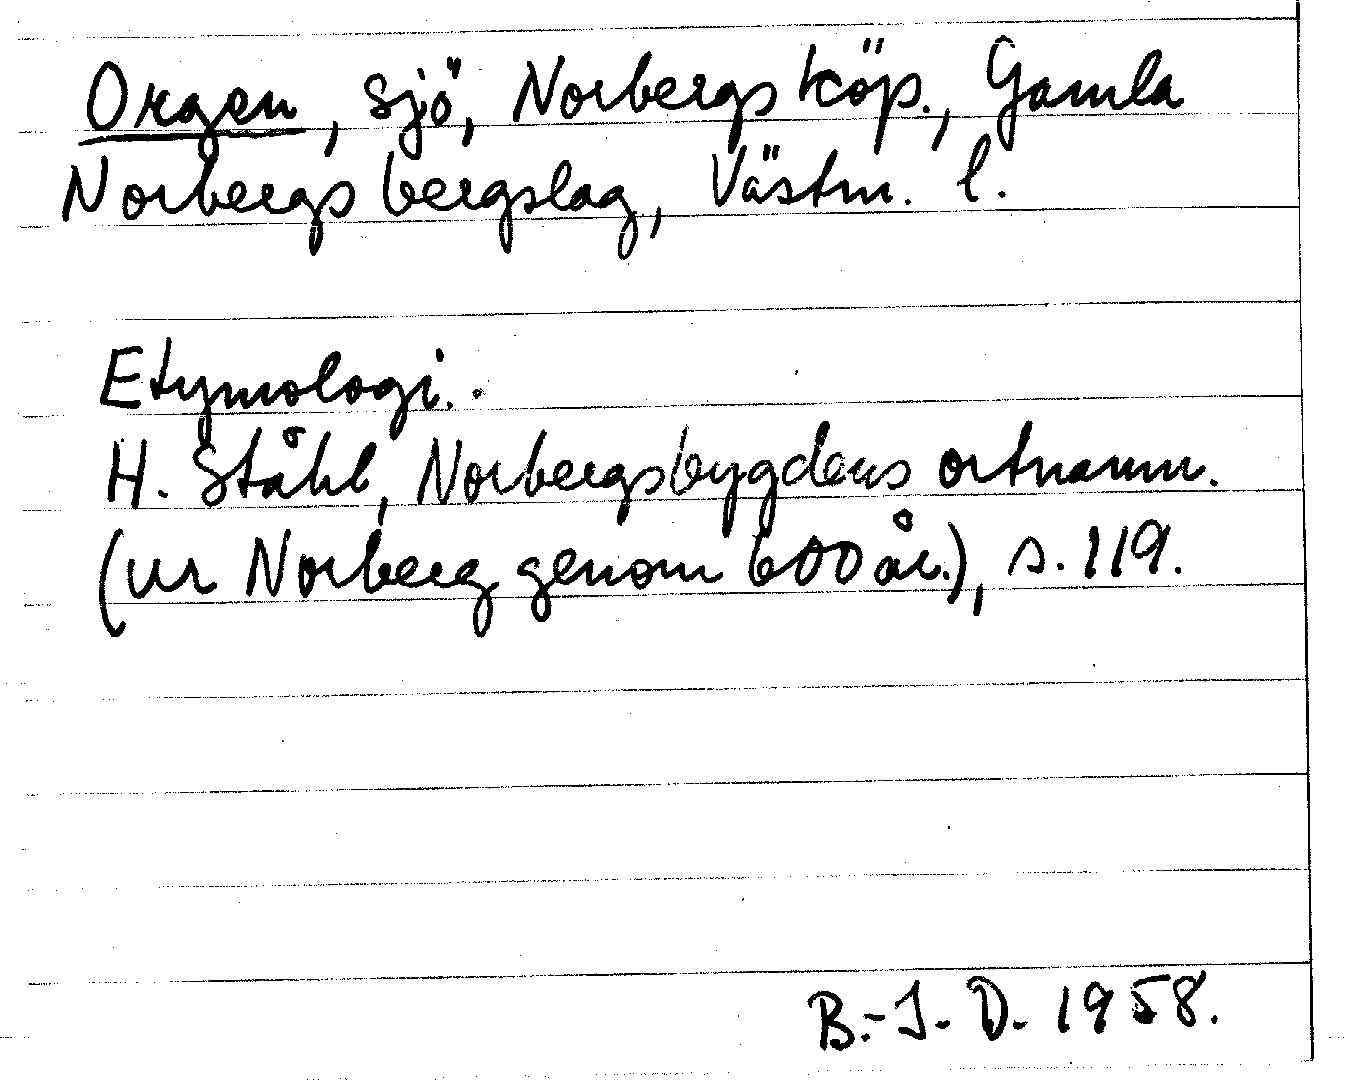 Orgen, sjö, Norbergs köp., Gamla
Norbergs bergslag, Västm. l.
Etymologi.
H. Ståhl, Norbergsbygdens ortnamn.
(ur Norberg genom 600 år.), s. 119.
B.-I. D. 1958.